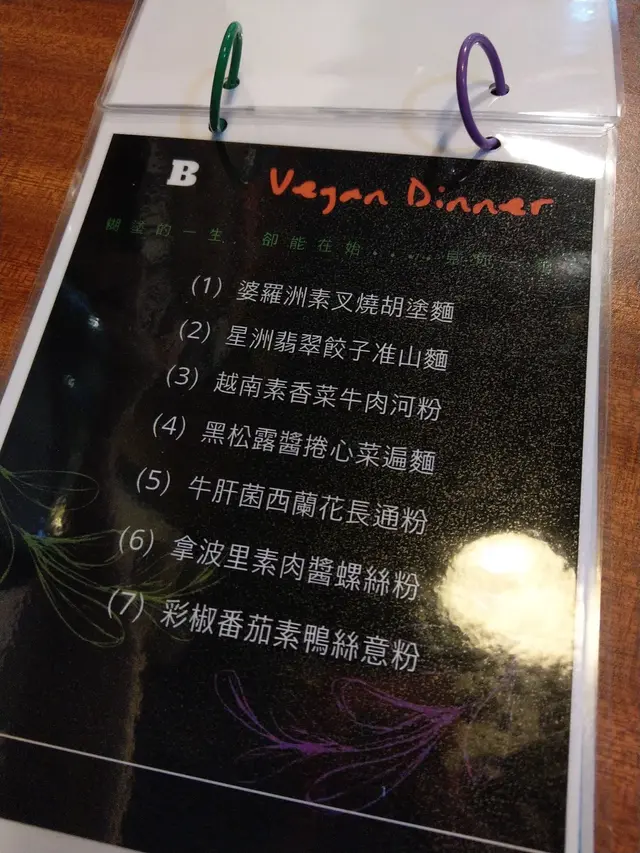 B Vegan Dinner
糊塗的一生. 卻能在始.....
(1) 婆羅洲素叉燒胡塗麵
(2) 星洲翡翠餃子准山麵
(3) 越南素香菜牛肉河粉
(4) 黑松露醬捲心菜遍麵
(5) 牛肝菌西蘭花長通粉
(6) 拿波里素肉醬螺絲粉
(7) 彩椒番茄素鴨絲意粉